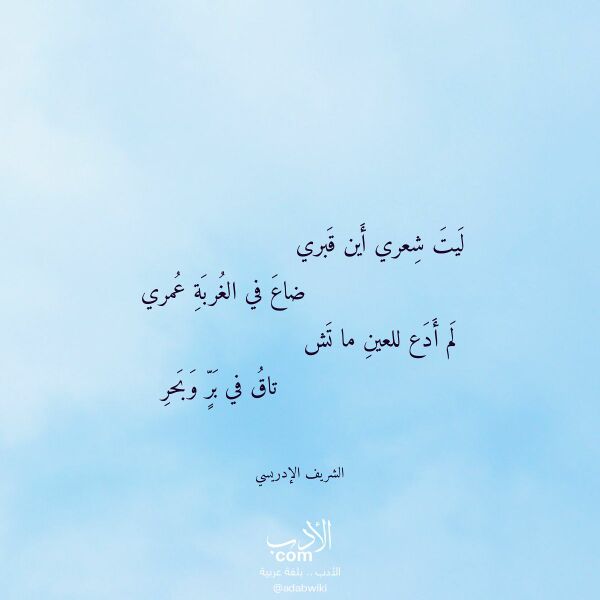 لَيتَ شِعري أَين قَبري
ضاعَ في الغُربَةِ عُمري
لَم أَدَع للعينِ ما تَش
تاقُ في بَرٍّ وَبَحرِ
الشريف الإدريسي
الأدب
com
الأدب .. بلغة عربية
@adabwiki